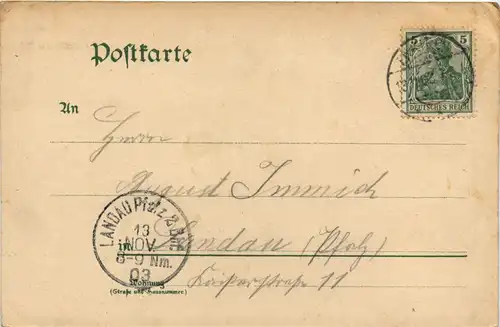 Postkarte
5 5
DEUTSCHES REICH
An
Herrn
August Immich
in Landau (Pfalz)
LANDAU Pfalz 2
13
NOV.
8-9 Nm.
03
Kaiserstraße 11
Wohnung
(Straße und Hausnummer)